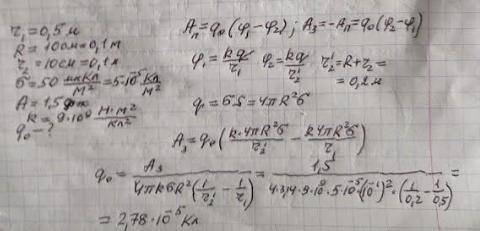 r₁=0,5 м
R=10см=0,1м
r₂=10см=0,1м
σ=50 мкКл/м²=5·10⁻⁵ Кл/м²
A=1,5
k=9·10⁹ Н·м²/Кл²
q₀-?
Aп=q₀(φ₁-φ₂); Aз=-Aп=q₀(φ₂-φ₁)
φ₁=kq/r₁ φ₂=kq/r₂' r₂'=R+r₂=
=0,2м
q=σS=4πR²σ
Aз=q₀(k·4πR²σ/r₂' - k4πR²σ/r₁)
q₀=Aз/4πkσR²(1/r₂'-1/r₁)=1,5/4·3,14·9·10⁹·5·10⁻⁵·(10⁻¹)²·(1/0,2-1/0,5)=
=2,78·10⁻⁵Кл